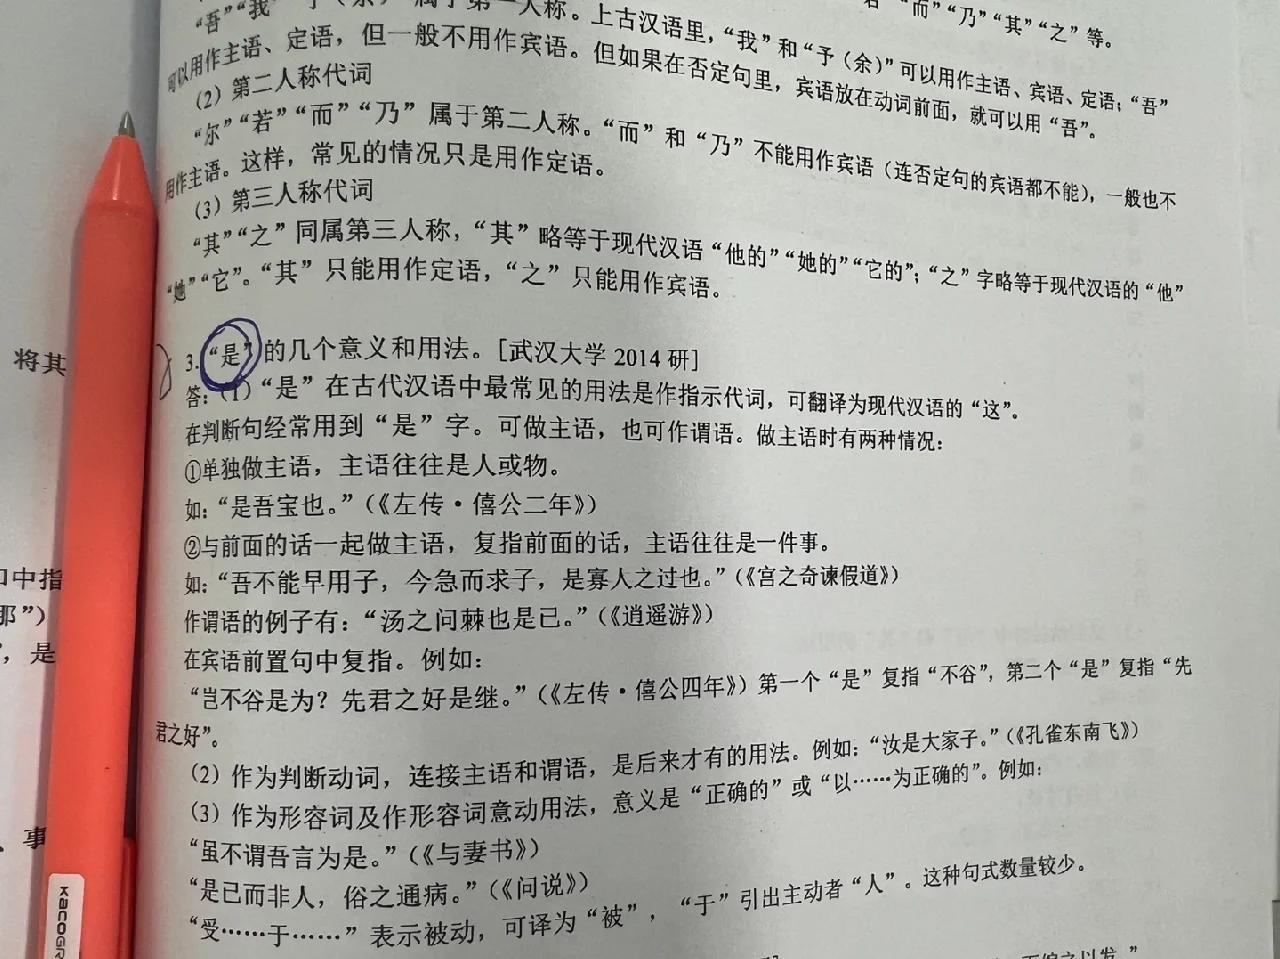 “吾”“我”
属于第一人称。上古汉语里，“我”和“予（余）”可以用作主语、宾语、定语；“吾”
“而”“乃”“其”“之”等。
可以用作主语、定语，但一般不用作宾语。但如果在否定句里，宾语放在动词前面，就可以用“吾”。
（2）第二人称代词
“尔”“若”“而”“乃”属于第二人称。“而”和“乃”不能用作宾语（连否定句的宾语都不能），一般也不
用作主语。这样，常见的情况只是用作定语。
（3）第三人称代词
“其”“之”同属第三人称，“其”略等于现代汉语“他的”“她的”“它的”；“之”字略等于现代汉语的“他”
“她”“它”。“其”只能用作定语，“之”只能用作宾语。
3.“是”的几个意义和用法。[武汉大学 2014 研]
答：（1）“是”在古代汉语中最常见的用法是作指示代词，可翻译为现代汉语的“这”。
在判断句经常用到“是”字。可做主语，也可作谓语。做主语时有两种情况：
①单独做主语，主语往往是人或物。
如：“是吾宝也。”（《左传·僖公二年》）
②与前面的话一起做主语，复指前面的话，主语往往是一件事。
如：“吾不能早用子，今急而求子，是寡人之过也。”（《宫之奇谏假道》）
作谓语的例子有：“汤之问棘也是已。”（《逍遥游》）
在宾语前置句中复指。例如：
“岂不谷是为？先君之好是继。”（《左传·僖公四年》）第一个“是”复指“不谷”，第二个“是”复指“先
君之好”。
（2）作为判断动词，连接主语和谓语，是后来才有的用法。例如：“汝是大家子。”（《孔雀东南飞》）
（3）作为形容词及作形容词意动用法，意义是“正确的”或“以……为正确的”。例如：
“虽不谓吾言为是。”（《与妻书》）
“是已而非人，俗之通病。”（《问说》）
“受……于……”表示被动，可译为“被”，“于”引出主动者“人”。这种句式数量较少。
将其
中指
那”）
，是
事
KACOGR